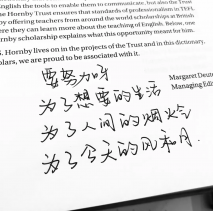 English the tools to enable them to communicate, but also the Trust
the Hornby Trust ensures that standards of professionalism in TEFL
by offering teachers from around the world scholarships at British
where they can learn more about the teaching of English. Below, one
Hornby scholarship explains what this opportunity meant for him.
S. Hornby lives on in the projects of the Trust and in this dictionary.
olars, we are proud to be associated with it.
Margaret Deute
Managing Edi
要努力呀
为了想要的生活
为了人间的烟火
为了今天的风和月.